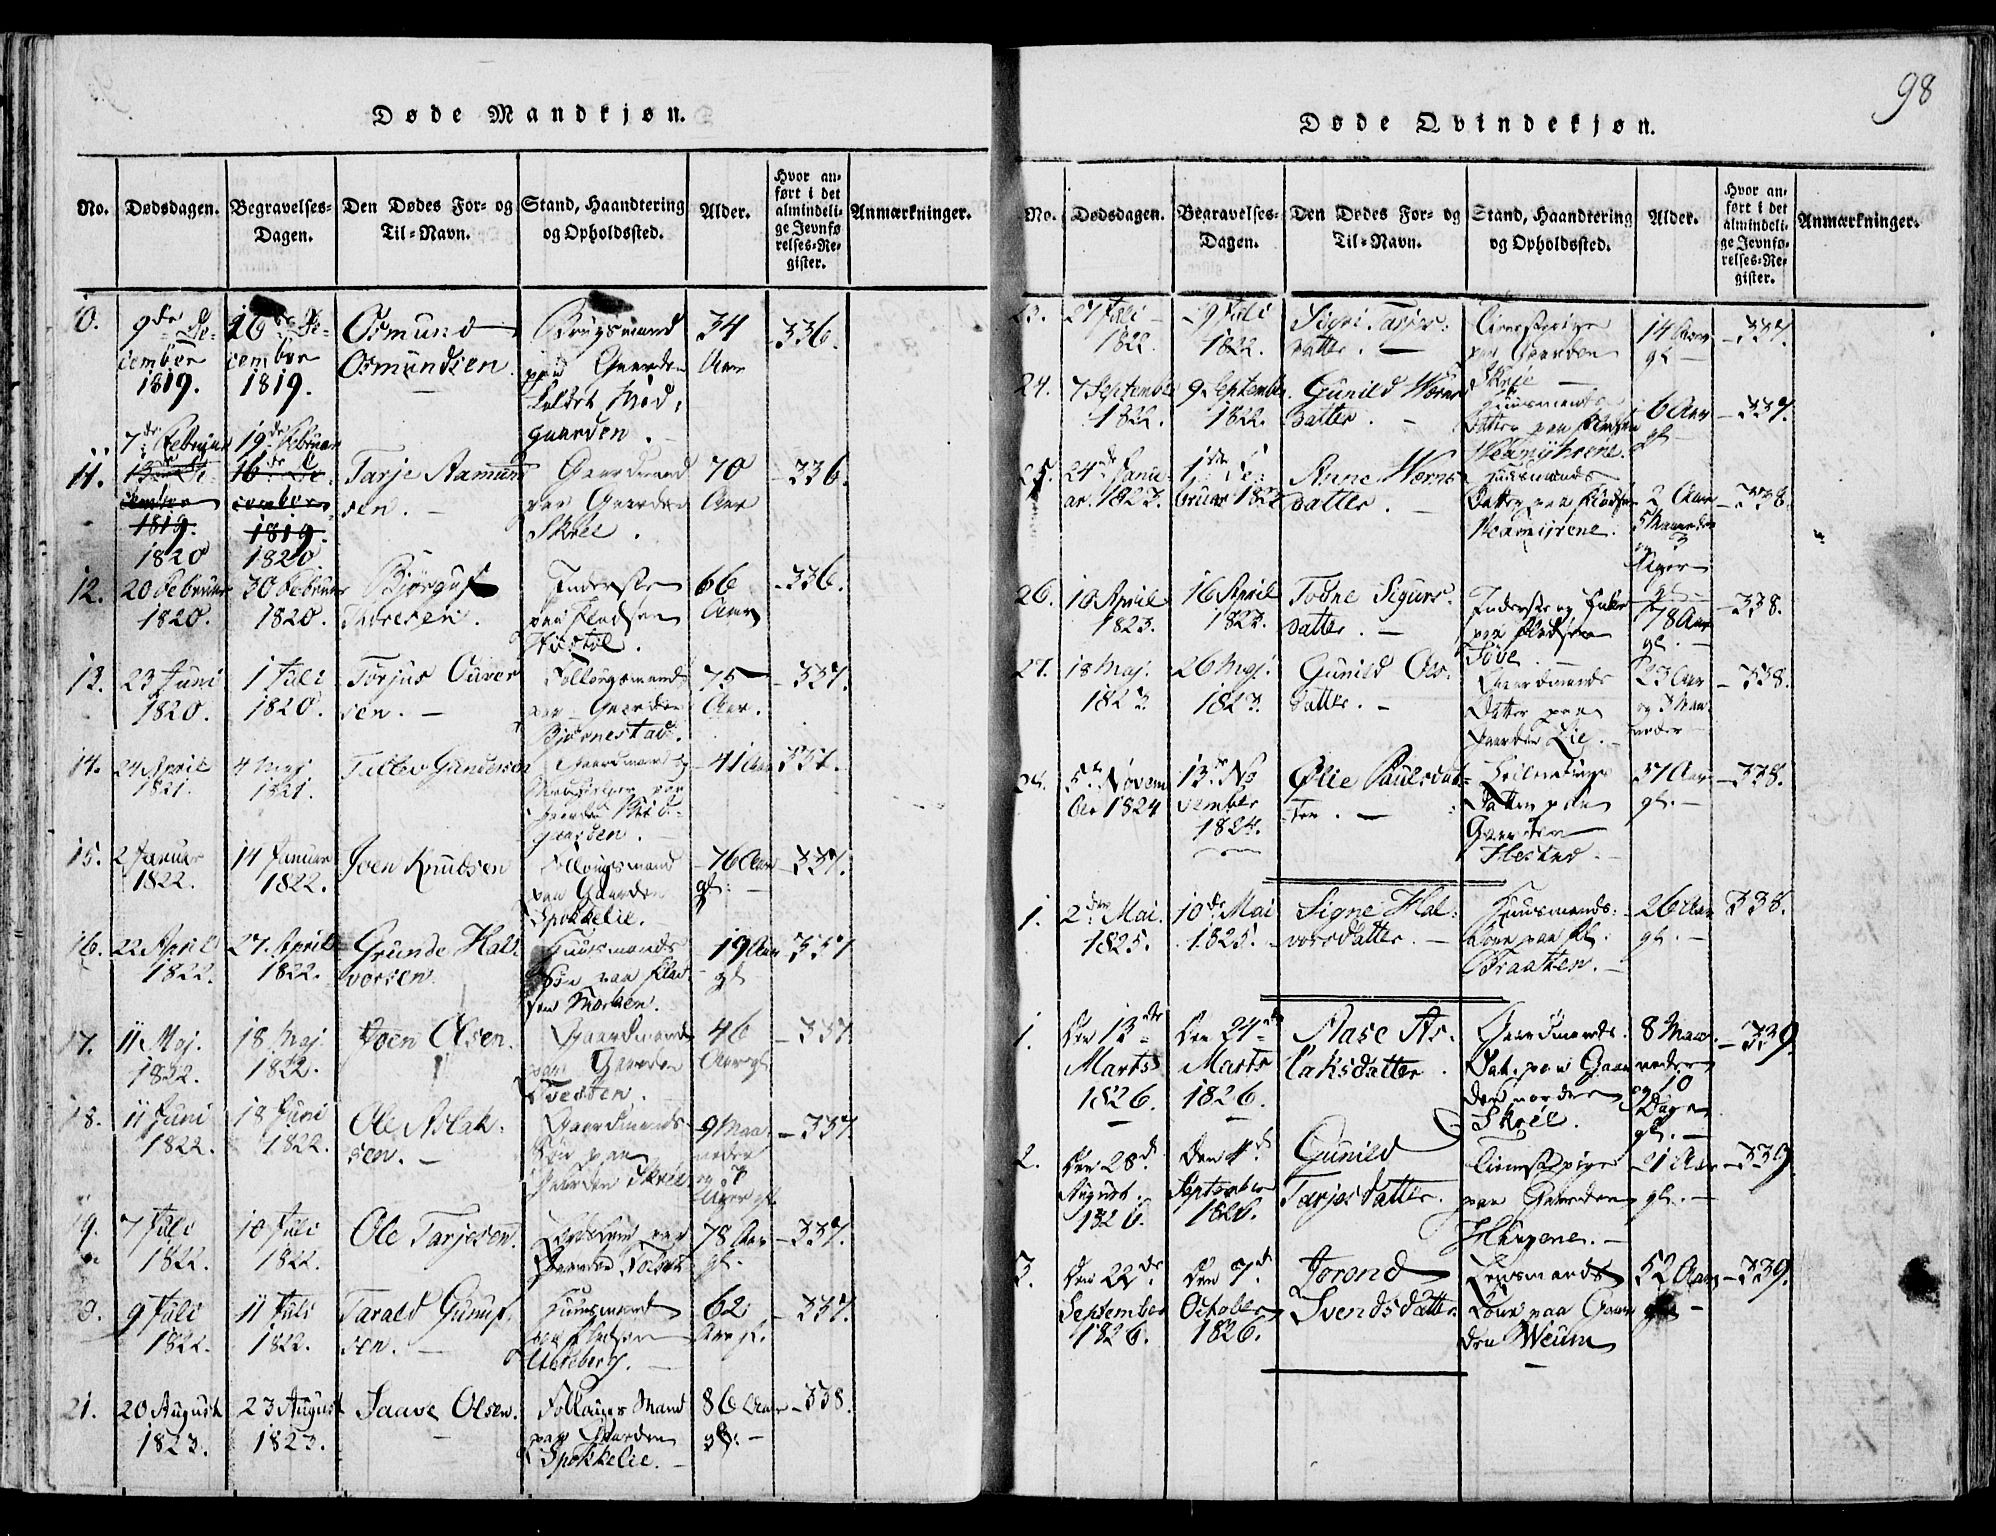 98
Døde Mandkjøn.
No. Dødsdagen. Begravelses-Dagen. Den Dødes For- og Til-Navn. Stand, Haandtering og Opholdssted. Alder. Hvor anført i det almindelige Jevnførelses-Register. Anmærkninger.
10. 9de December 1819. 16de December 1819. Osmund Osmundsen. Brugsmand paa Gaarden Kaldet Midgaarden. 34 Aar 336.
11. 7de Februar 1820 19de Februar 1820. Tarje Aamundsen. Gaardmand paa Gaarden Skree. 70 Aar 336.
12. 20 Februar 1820. 30 Februar 1820. Bjørguf Thoresen. Inderste paa Pladsen 66 Aar 336.
13. 23 Juni 1820. 1 Juli 1820. Torjus Ouversen. Gaarden Bjørnestad. 75 Aar. 337.
14. 24 April 1821. 4 Maj 1821. Tellev Gundersen Gaardmand og paa Gaarden Midgaarden. 41 Aar 337.
15. 2 Januar 1822. 14 Januar 1822. Joen Knudsen Follougsmand paa Gaarden Spokkelie. 76 Aar gl. 337.
16. 22 April 1822. 27. April 1822. Grunde Halvorsen. Huusmands Søn paa Pladsen Moehaen. 19 Aar gl 337
17. 11 Maj. 1822. 18 Maj 1822. Joen Olsen. Gaardmand paa Gaarden Tvedten. 46 Aar gl. 337
18. 11 Juni 1822. 18 Juni 1822. Ole Aslaksen. Gaardmands Søn paa Gaarden Skree 9 Maaneder og 3 Uger gl. 337
19. 7 Juli 1822. 10 Juli 1822. Ole Tarjesen. paa Gaarden 78 Aar gl. 337.
20. 9 Juli 1822. 11 Juli 1822. Tarald Gunufsen. Huusmand paa Pladsen 62 Aar gl. 337.
21. 20 August 1823. 23 August 1823. Saave Olsen. Follougs Mand paa Gaarden Spokkelie. 86 Aar gl. 338.
Døde Qvindekjøn.
No. Dødsdagen. Begravelses-Dagen. Den Dødes For- og Til-Navn. Stand, Haandtering og Opholdssted. Alder. Hvor anført i det almindelige Jevnførelses-Register. Anmærkninger.
23. 27 Juli 1822. 29 Juli 1822. Sigri Tarjesdatter. Tienestepige paa Gaarden Skree 14 Aar gl 337.
24. 7 September 1822. 9 September 1822. Gunild Wærnsdatter. Huusmands Datter paa Pladsen 6 Aar gl 337.
25. 24de Januar. 1823. 1de Februar 1823 Anne Wernsdatter. Huusmands Datter paa Pladsen 2 Aar 5 Maaneder og 3 Uger gl. 338.
26. 10 April 1823. 16 April 1823. Todne Sigursdatter. Inderste og Enke paa Pladsen 78 Aar gl. 338.
27. 18 Maj. 1823 26 Maj. 1823. Gunild Olsdatter. Gaardmands Datter paa Gaarden Lie. 23 Aar og 3 Maaneder 338.
28. 5te November 1824 13de November 1824. Ølie Paulsdatter. Datter paa Gaarden Hestad 37 Aar gl. 338.
1. 2den Mai. 1825. 10de Mai 1825. Signe Halvorsdatter. Huusmands Kone paa Pl. Braatten. 26 Aar gl. 338.
1. Den 13de Marts 1826. Den 24de Marts 1826. Aase Aslaksdatter. Gaardmands Dat. paa Gaarden nordre Skree. 8 Maaneder og 10 Dage gl. 339.
2. Den 28de August. 1826. Den 4de September 1826. Gunild Tarjesdatter. Tienestepige paa Gaarden Haugene. 21 Aar gl. 339.
3. Den 22de September 1826. Den 7de October 1826. Jorond Svendsdatter. Lensmands Kone paa Gaarden Weum 52 Aar gl 339.